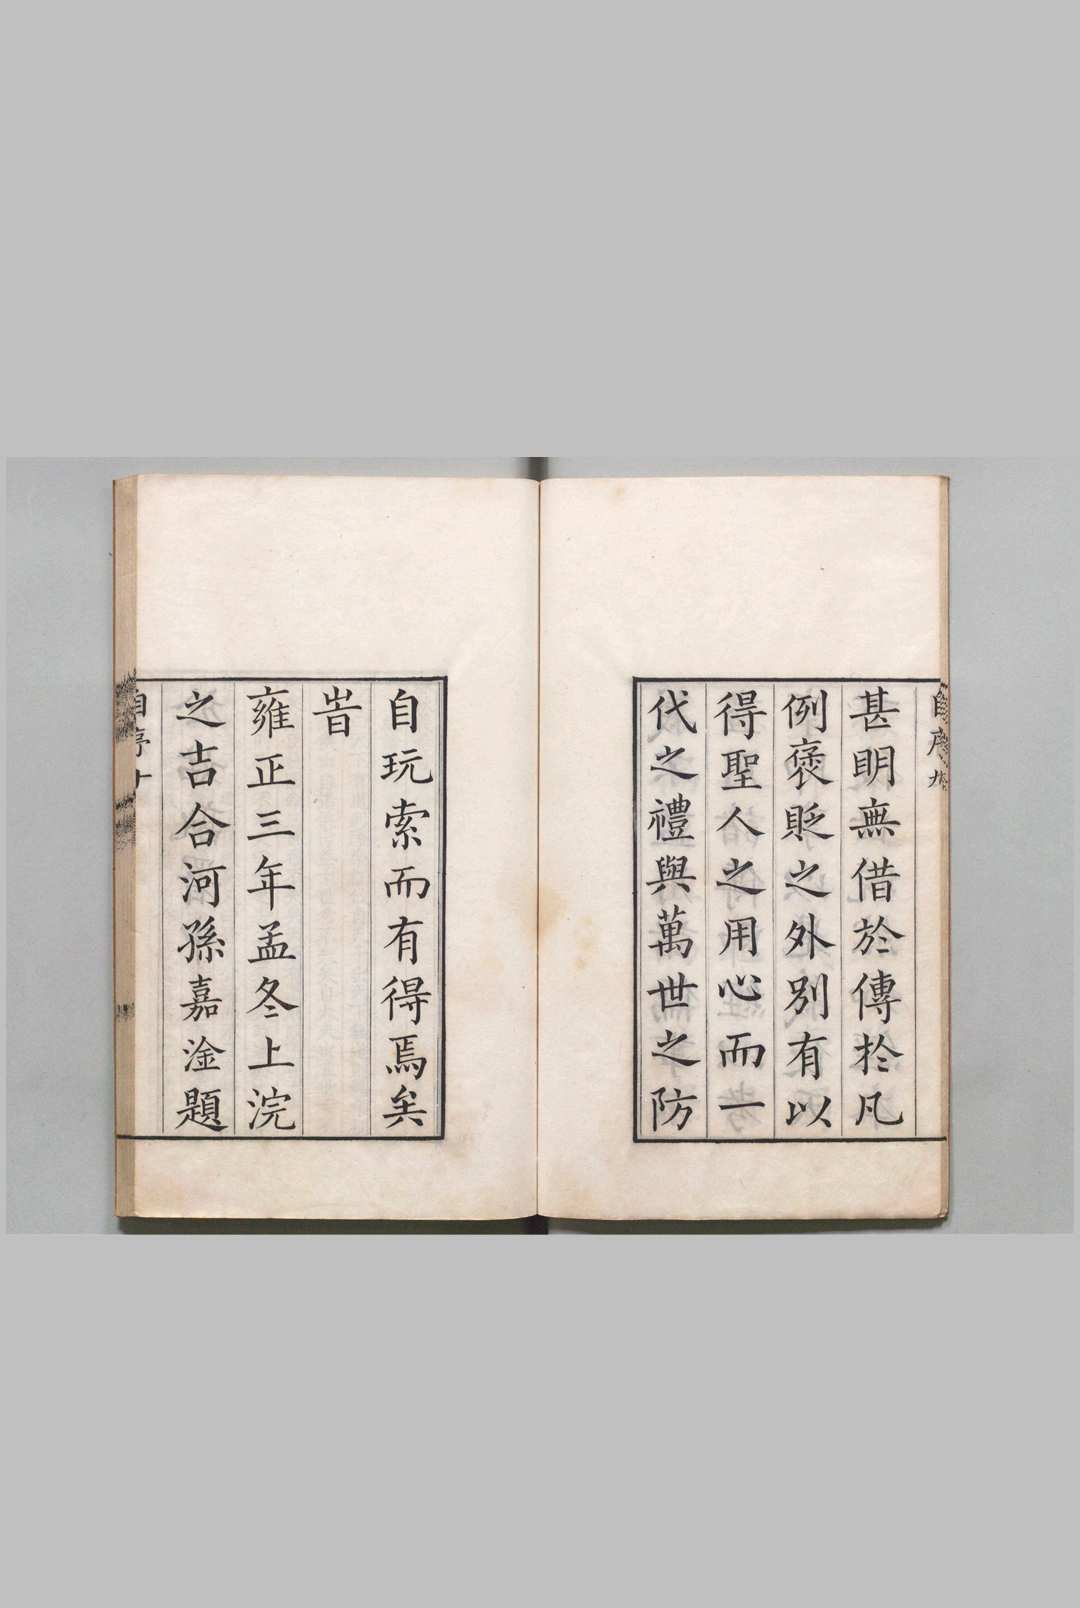 甚明無借於傳於凡
例褒貶之外別有以
得聖人之用心而一
代之禮與萬世之防
自玩索而有得焉矣
旹
雍正三年孟冬上浣
之吉合河孫嘉淦題
自序十